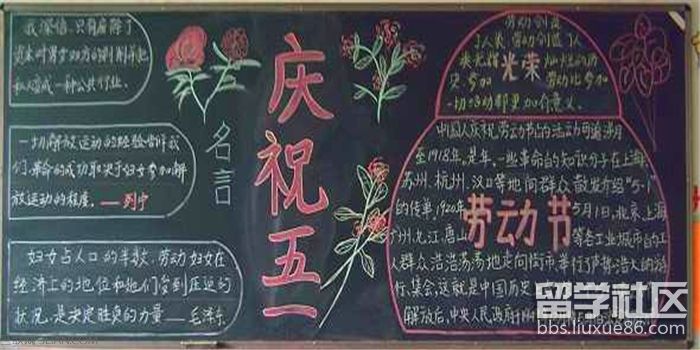 我深信,只有废除了
资本对男女双方的剥削并把
私人变成一种公共行业。
一切解放运动的经验告诉我
们,革命的成功取决于妇女参加解
放运动的程度。——列宁
妇女占人口的半数,劳动妇女在
经济上的地位和她们受到压迫的
状况,是决定胜负的力量——毛泽东
名言
庆祝五一
劳动创造
了人类 劳动创造了人
类光辉 光荣 灿烂的历
史,参加 劳动比参加
一切活动都更加有意义。
中国人庆祝劳动节的活动可追溯
至1918年,是年,一些革命的知识分子在上海
苏州、杭州、汉口等地向群众散发介绍"5·1"
的传单,1920年 5月1日,北京、上海
广州、九江、唐山 等各工业城市的工
劳动节
人群众浩浩荡荡地走向街市举行了声势浩大的游
行、集会,这就是中国历史
解放后,中央人民政府于194
留学社区
bbs.liuxue86.com